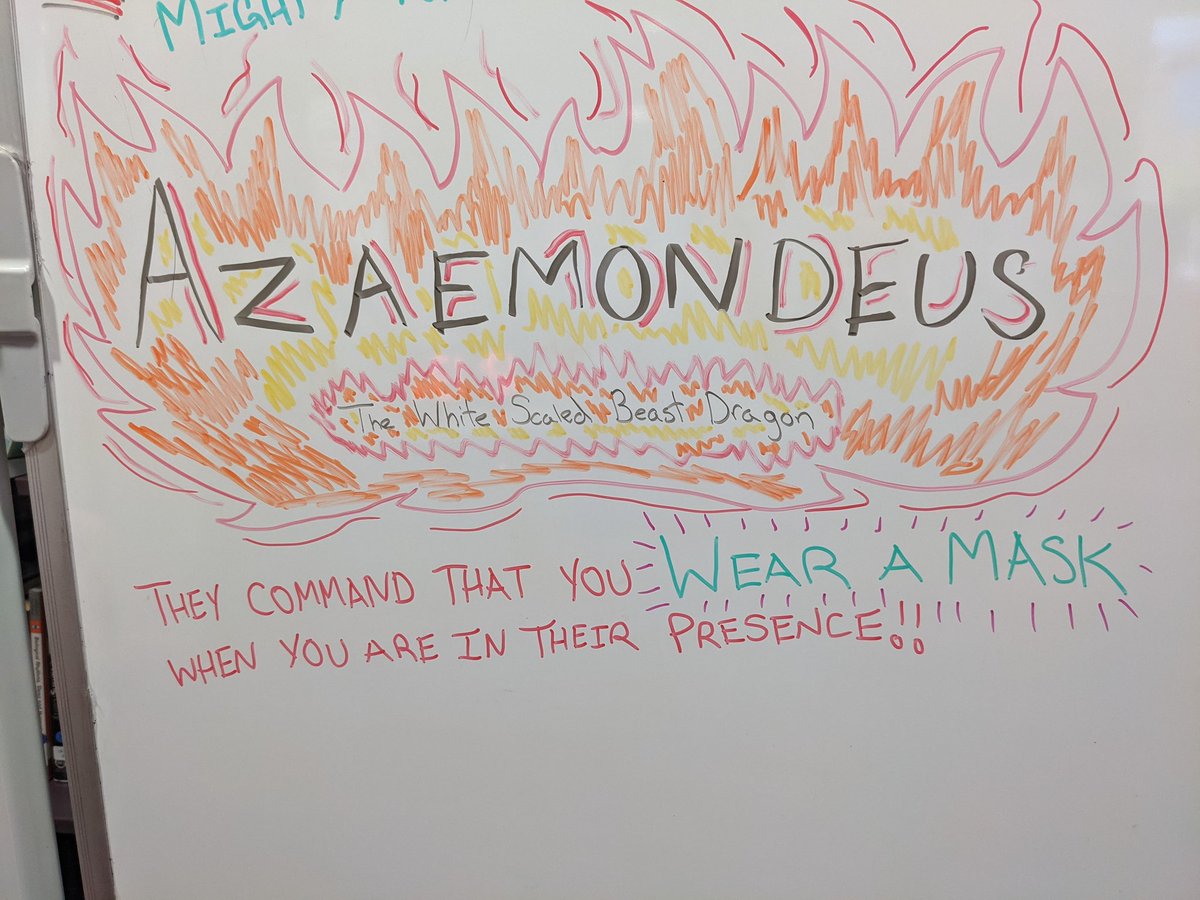 MIGHTY
AZAEMONDEUS
The White Scaled Beast Dragon
THEY COMMAND THAT YOU WEAR A MASK
WHEN YOU ARE IN THEIR PRESENCE!!